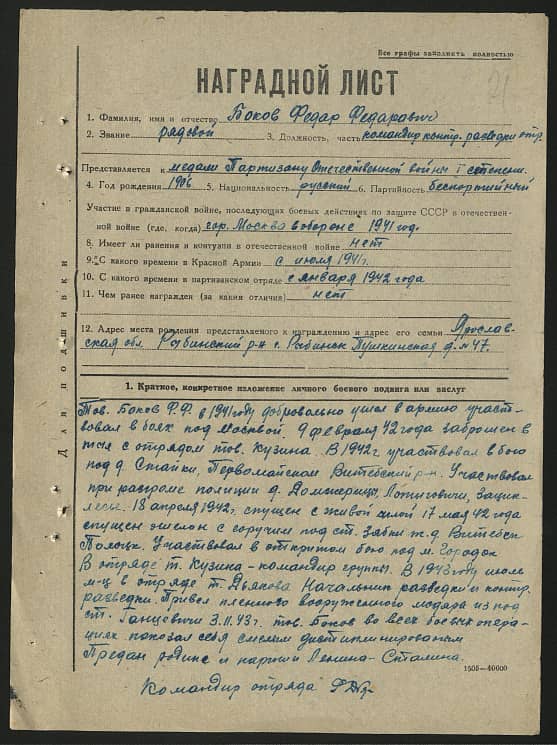 Все графы заполнять полностью
21
НАГРАДНОЙ ЛИСТ
1. Фамилия, имя и отчество Боков Федар Федаравич
2. Звание рядовой 3. Должность, часть командир контр. разведки отр.
Представляется к медали Партизану Отечественной войны I степени.
4. Год рождения 1906 5. Национальность русский 6. Партийность беспортийный
Участие в гражданской войне, последующих боевых действиях по защите СССР в отечествен-
ной войне (где, когда) гор. Москва в обороне 1941 год.
8. Имеет ли ранения и контузии в отечественной войне нет
9. С какого времени в Красной Армии с июля 1941г.
10. С какого времени в партизанском отряде с января 1942 года
11. Чем ранее награжден (за какия отличия) нет
12. Адрес места рождения представляемого к награждению и адрес его семьи Ярослав-
ская обл. Рыбинский р-н г. Рыбинск Пушкинская д. № 47.
Для подшивки
1. Краткое, конкретное изложение личного боевого подвига или заслуг
Тов. Боков Ф.Ф. в 1941 году добровольно ушел в армию участ-
вовал в боях под Москвой. 9 февраля 42 года заброшен в
тыл с отрядом тов. Кузина. В 1942г участвовал в бою
под д. Стайки, Первомайском Витебский р-н. Участвовал
при разгроме полиции д. Домжерицы,
18 апреля 1942г. спущен с живой силой 17 мая 42 года
спущен эшелон с горучим под ст. Зябки ж.д. Витебск
Полоцк. Участвовал в открытом бою под м. Городок
В отряде т. Кузина - командир группы. В 1943 году июле
м-ц в отряде т. Дьякова Начальник разведки и контр.
разведки. Привел пленного вооруженного модяра из под
ст. Ганцевичи 3.11.43г. тов. Боков во всех боевых опера-
циях показал себя смелым дистиплинированым
Предан родине и партии Ленина-Сталина.
1505-40000
Командир отряда